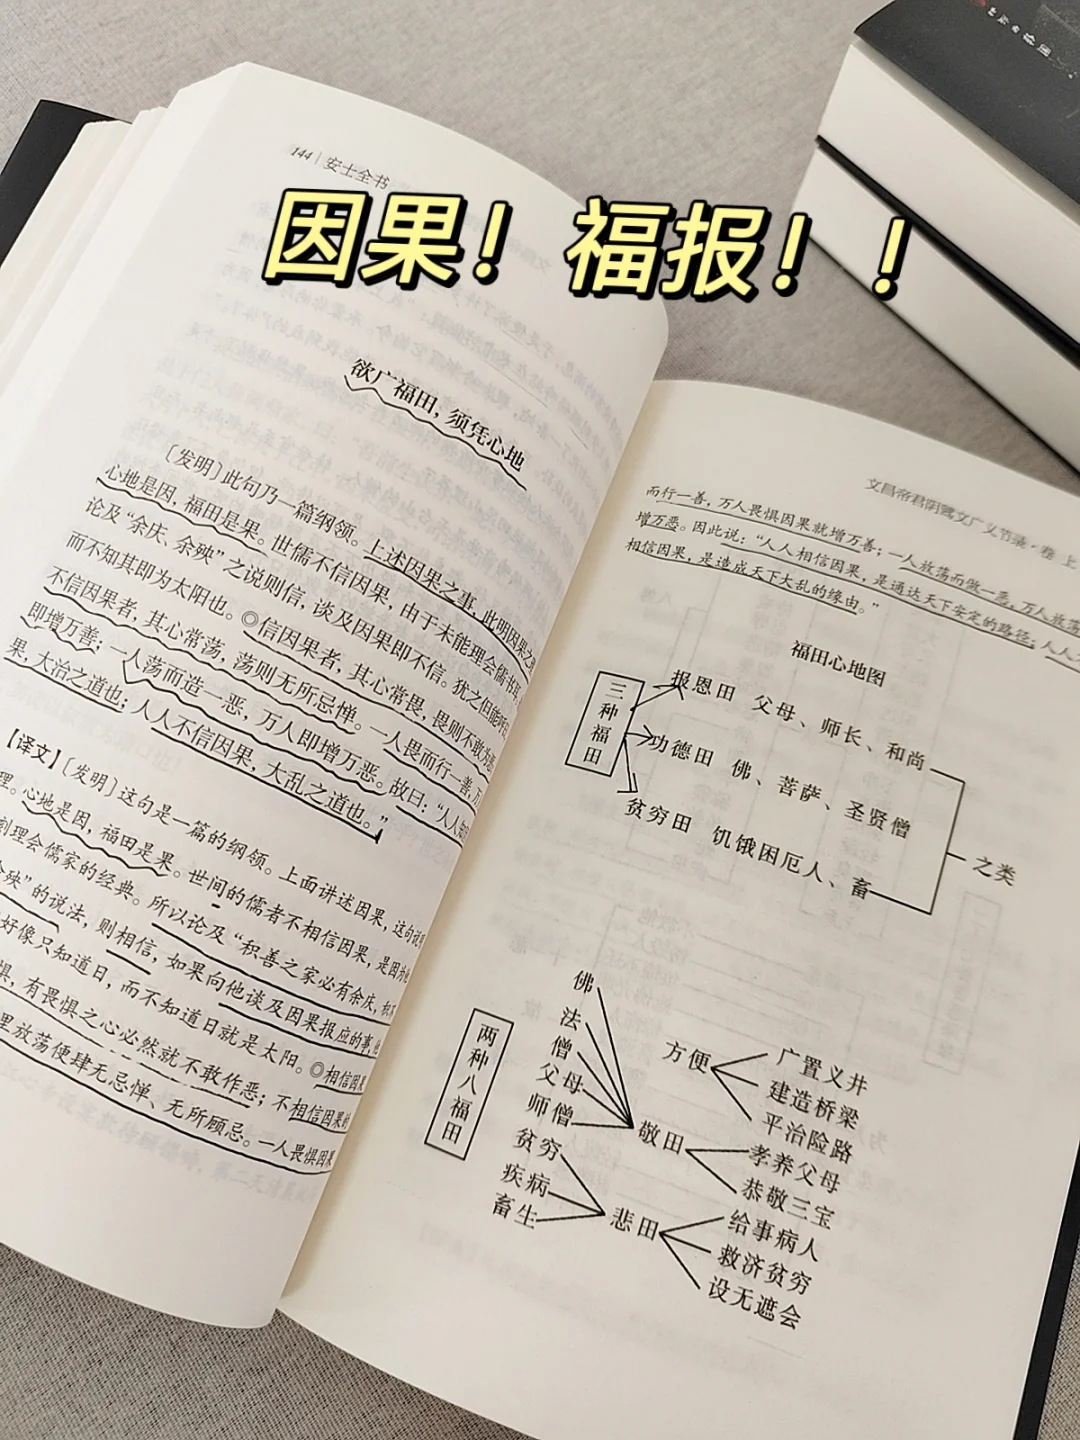 因果！福报！！
144 | 安士全书
欲广福田，须凭心地
〔发明〕此句乃一篇纲领。上述因果之事，此明因果之
心地是因，福田是果。世儒不信因果，由于未能理会儒书耳
论及“余庆、余殃”之说则信，谈及因果即不信。犹之但能呼日
而不知其即为太阳也。◎信因果者，其心常畏，畏则不敢为恶
不信因果者，其心常荡，荡则无所忌惮。一人畏而行一善，万
即增万善；一人荡而造一恶，万人即增万恶。故曰：“人人知
果，大治之道也；人人不信因果，大乱之道也。”
【译文】〔发明〕这句是一篇的纲领。上面讲述因果，这句说明
理。心地是因，福田是果。世间的儒者不相信因果，是因为他
刻理会儒家的经典。所以论及“积善之家必有余庆，积
余殃”的说法，则相信，如果向他谈及因果报应的事，他
好像只知道日，而不知道日就是太阳。◎相信因果
惧，有畏惧之心必然就不敢作恶；不相信因果的
里放荡便肆无忌惮、无所顾忌。一人畏惧因果
文昌帝君阴骘文广义节录·卷上
而行一善，万人畏惧因果就增万善；一人放荡而做一恶，万人放荡
增万恶。因此说：“人人相信因果，是通达天下安定的路径；人人不
相信因果，是造成天下大乱的缘由。”
福田心地图
三种福田
报恩田 父母、师长、和尚
功德田 佛、菩萨、圣贤僧
贫穷田 饥饿困厄人、畜
之类
两种八福田
佛
法
僧
父母
师僧
贫穷
疾病
畜生
敬田
悲田
方便
广置义井
建造桥梁
平治险路
孝养父母
恭敬三宝
给事病人
救济贫穷
设无遮会